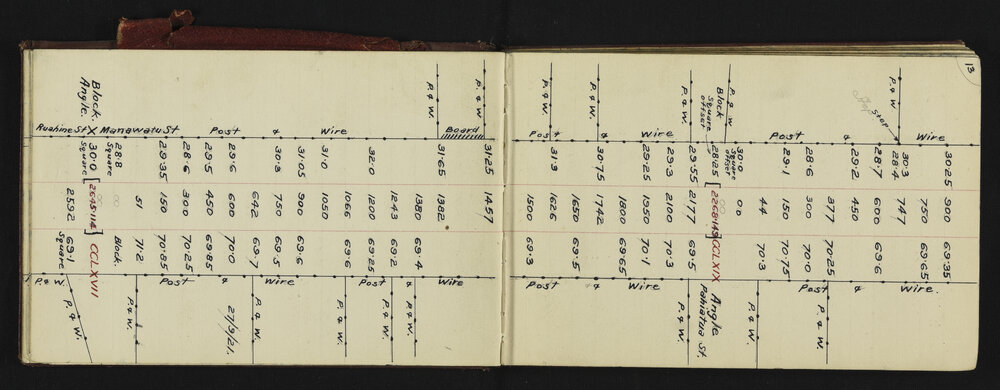 13
Block. Angle.
Ruahine St X Manawatu St Post & Wire
P. & W.
P. & W.
Board
30.0 Square
28.8 Square
29.35
28.6
29.5
29.6
30.3
31.05
31.0
32.0
31.65
31.25
2592
[2645.114]
00
51
150
300
450
600
642
750
900
1050
1066
1200
1243
1380
1382
1457
69.1 Square
CCLXVII
Block.
71.2
70.85
70.25
69.85
70.0
69.7
69.5
69.6
69.6
69.25
69.2
69.4
P. & W. Post & Wire Post & Wire
P. & W.
P. & W.
27/9/21.
P. & W.
P. & W.
P. & W.
P. & W.
P. & W.
P. & W.
Block Square offset
P. & W.
P. & W.
Post & Wire Post & Wire
Stay
31.3
30.75
29.25
29.3
29.55
28.25
30.0 Square offset
29.1
28.6
29.2
28.7
30.3
30.25
1500
1626
1650
1742
1800
1950
2100
2177
[2268.149]
00
44
150
300
377
450
600
747
750
900
69.3
69.5
69.65
70.1
70.3
69.5
CCLXIX
70.3
70.75
70.0
70.25
69.6
69.65
69.35
Post & Wire Post & Wire.
P. & W.
Angle Pahiatua St.
P. & W.
P. & W.